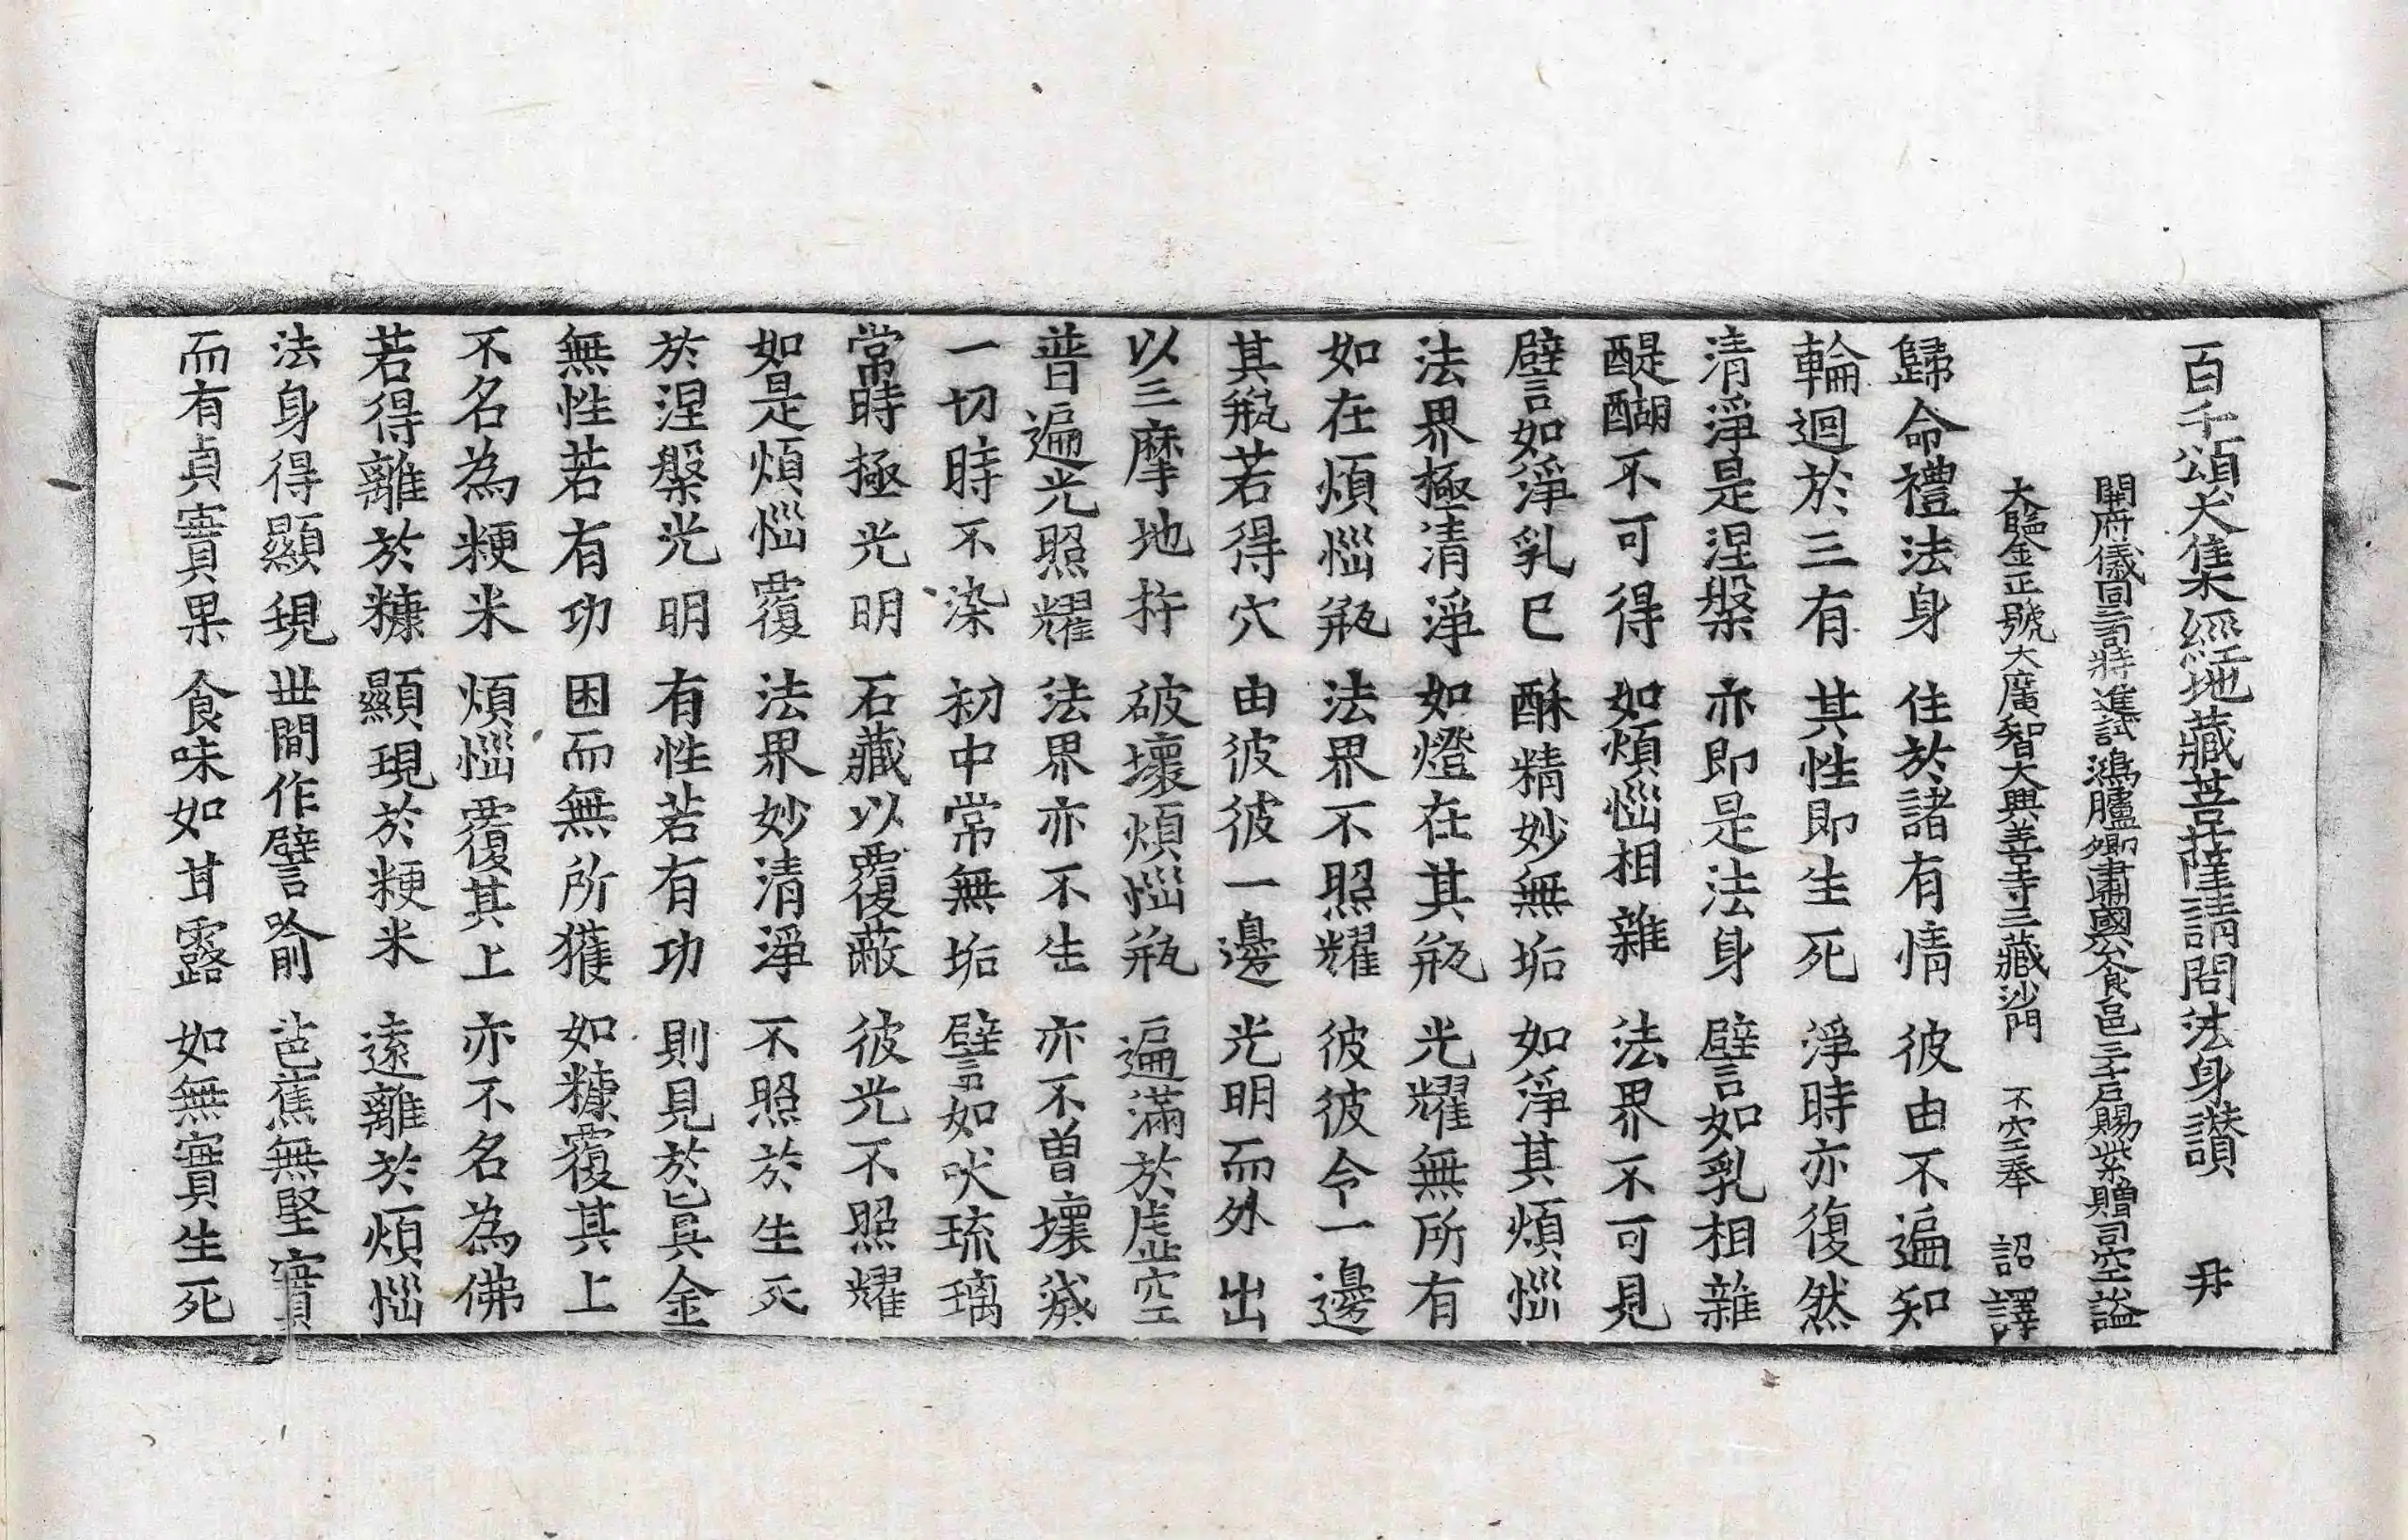 百千頌大集經地藏菩薩請問法身讃 丼
開府儀同三司特進試鴻臚卿肅國公食邑三千戶賜紫贈司空謚
大鑒正號大廣智大興善寺三藏沙門 不空奉 詔譯
歸命禮法身 住於諸有情 彼由不遍知
輪迴於三有 其性即生死 淨時亦復然
清淨是涅槃 亦即是法身 譬如乳相雜
醍醐不可得 如煩惱相雜 法界不可見
譬如淨乳已 酥精妙無垢 如淨其煩惱
法界極清淨 如燈在其瓶 光耀無所有
如在煩惱瓶 法界不照耀 彼彼令一邊
其瓶若得穴 由彼彼一邊 光明而外出
以三摩地杵 破壞煩惱瓶 遍滿於虛空
普遍光照耀 法界亦不生 亦不曽壞滅
一切時不染 初中常無垢 譬如吠琉璃
常時極光明 石藏以覆蔽 彼光不照耀
如是煩惱覆 法界妙清淨 不照於生死
於涅槃光明 有性若有功 則見於真金
無性若有功 困而無所獲 如糠覆其上
不名為粳米 煩惱覆其上 亦不名為佛
若得離於糠 顯現於粳米 遠離於煩惱
法身得顯現 世間作譬喻 芭蕉無堅實
而有貞實果 食味如甘露 如無實生死